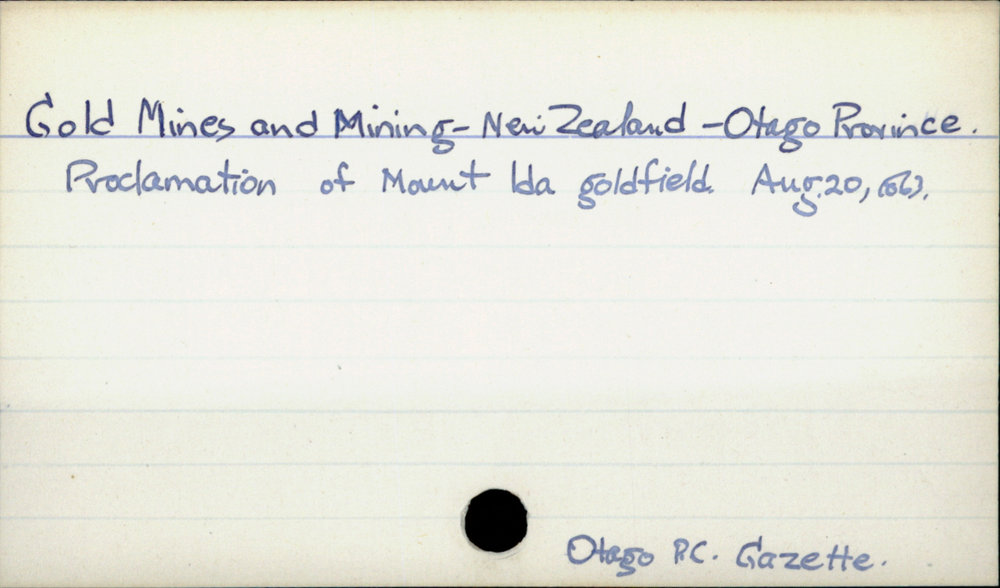 Gold Mines and Mining - New Zealand - Otago Province.
Proclamation of Mount Ida goldfield. Aug. 20,
Otago P.C. Gazette.